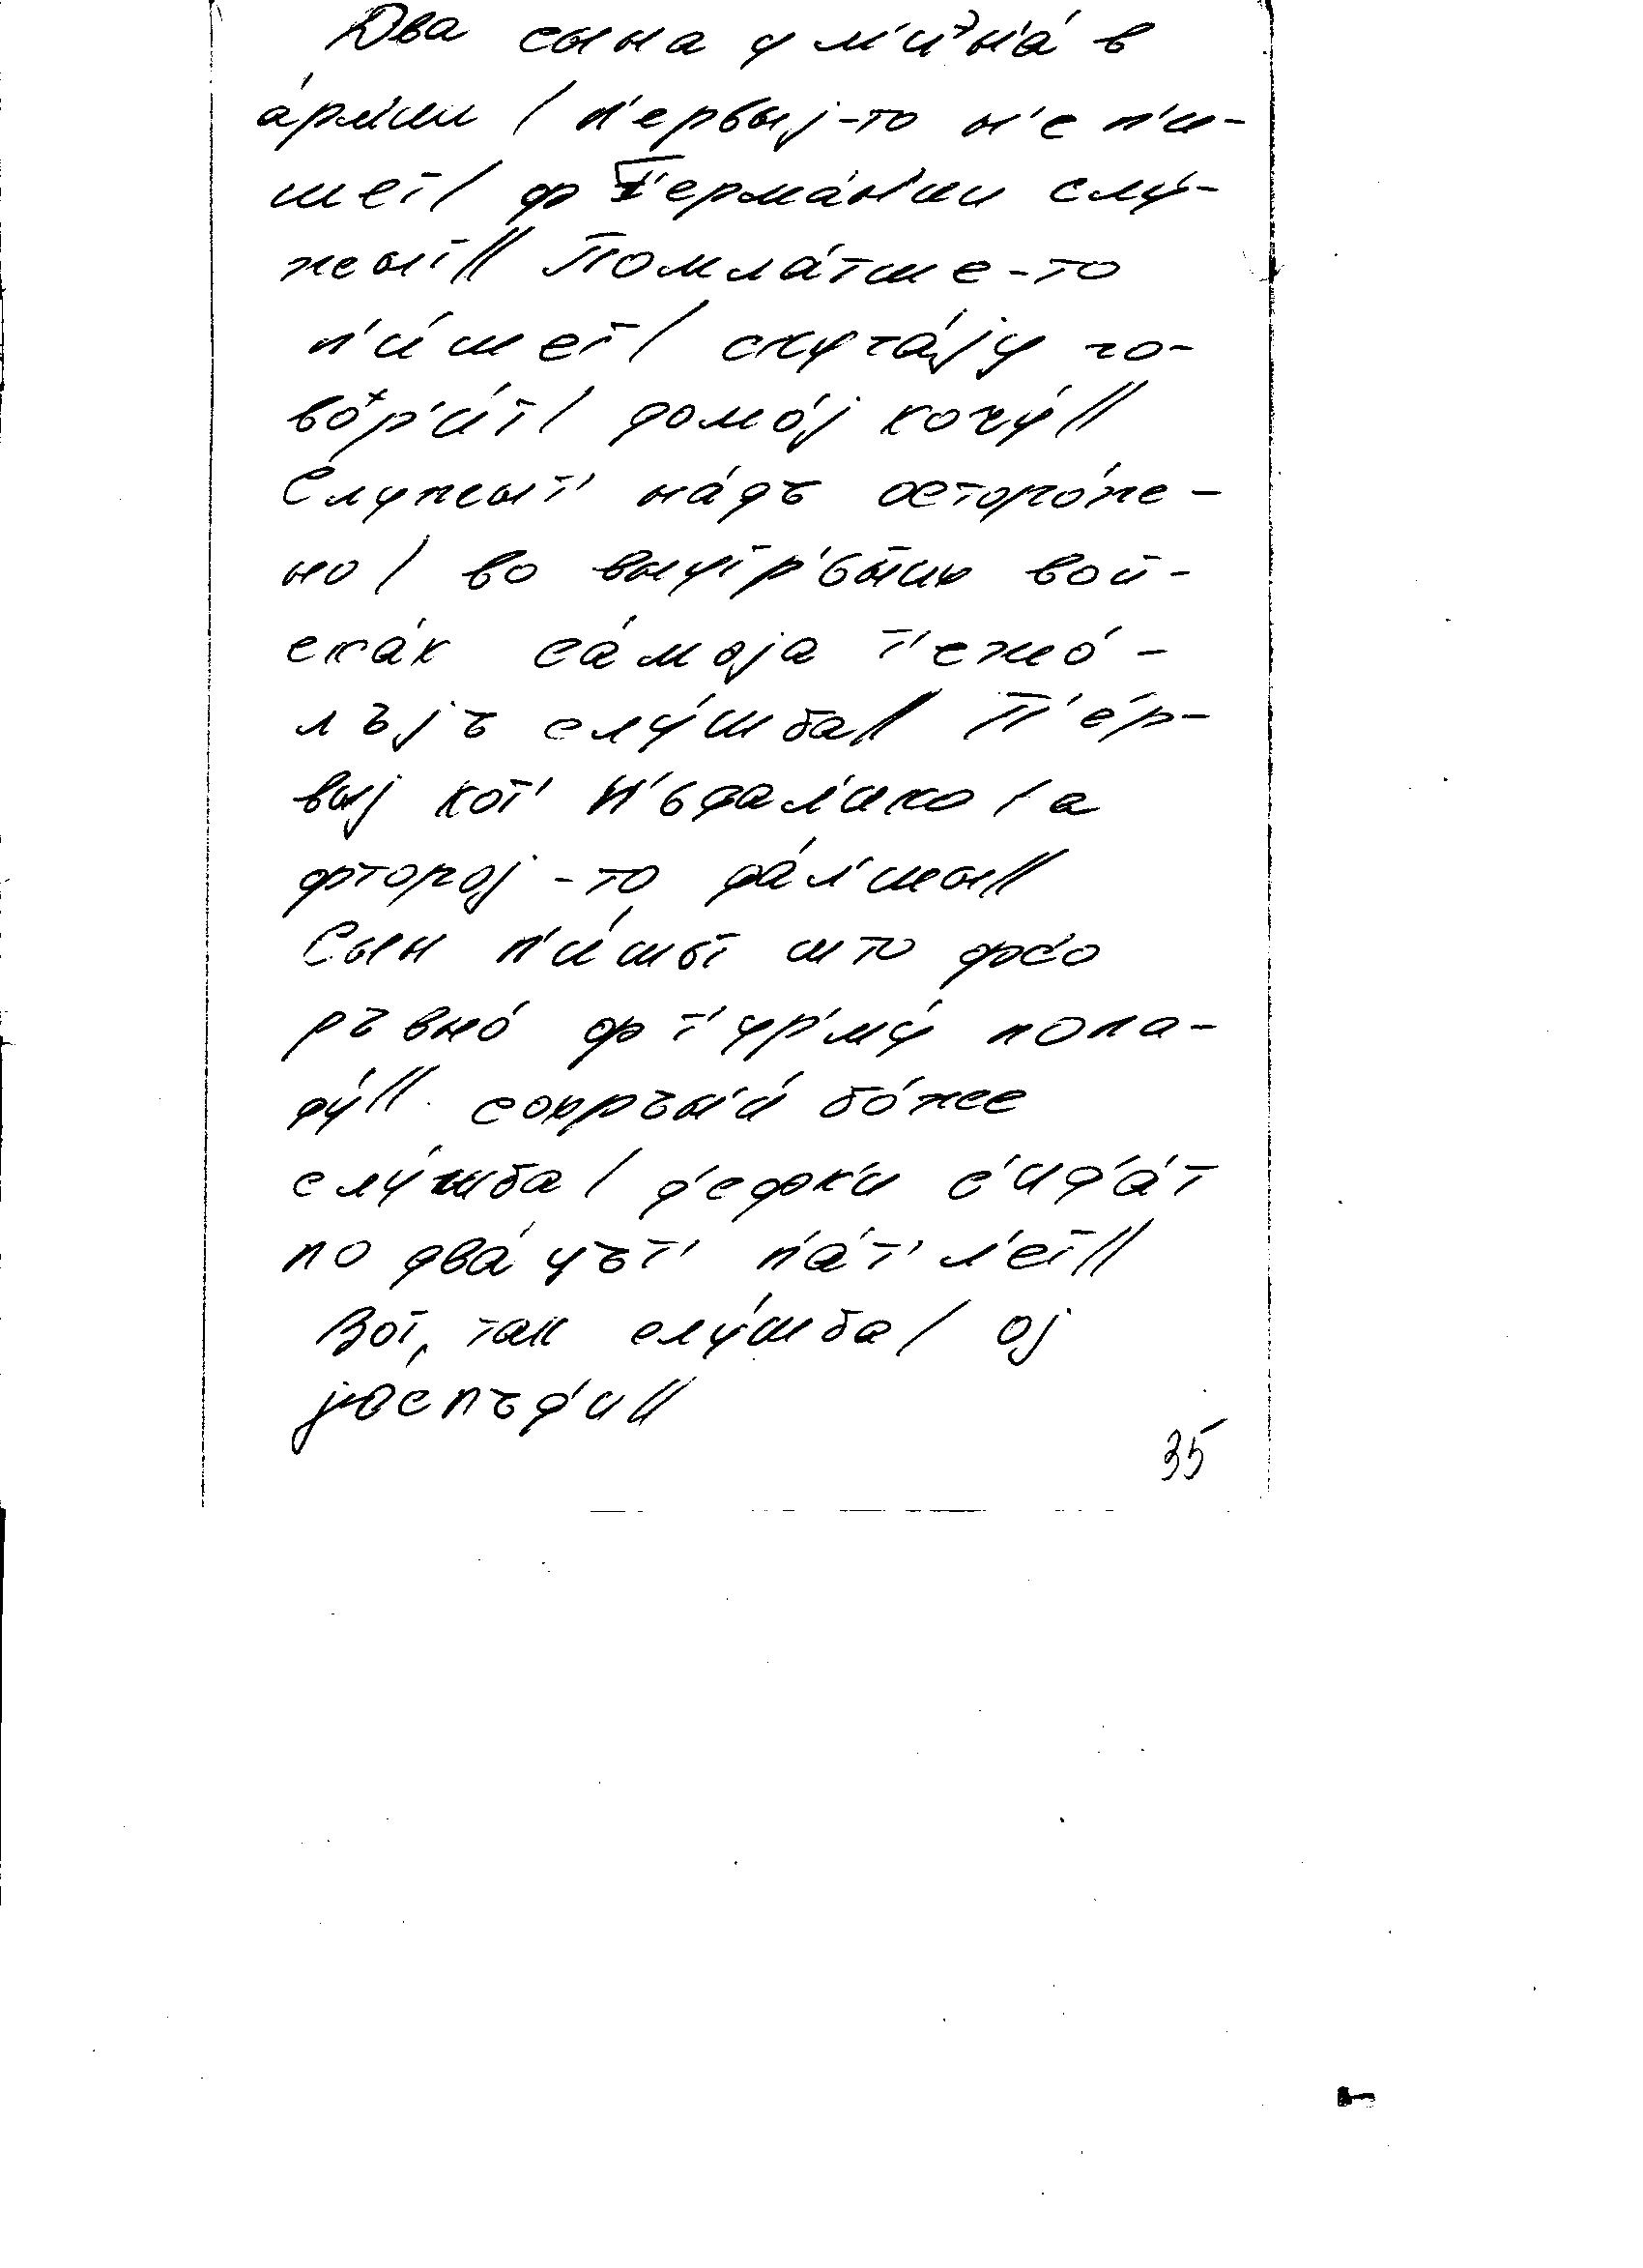 Два сына у м'и³н'а́ в
а́рм'ии / п'ервыj-то н'е п'и-
шет / ф Г'ерма́н'ии слу́-
жыт // Помла́тше-то
п'и́шет / скуча́jу го-
вор'и́т / домо́j хочу́ //
Служыт' на́дъ осторо́жє-
но / во внутр'ьных вой-
ска́х са́моjа т'ежо́-
лъjъ слу́шба // П'е́р-
выj хот' н'ьдал'ико / а
фторој-то да́л'шы //
Сын п'и́шьт што фс'о
ръвно́ ф т'ур'му́ попа-
ду́ // сохрън'и́ бо́же
слу́жба / д'ефк'и с'ид'а́т
по два́цът' п'а́т' л'ет //
Вот, так слу́шба / ој
jосπъд'и //
35